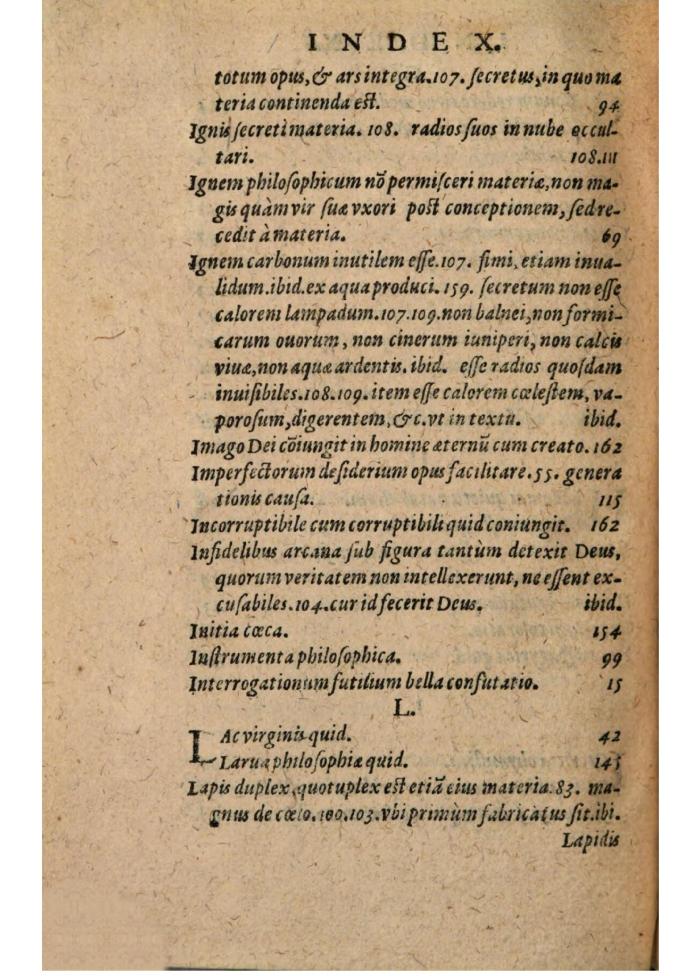 INDEX.
totum opus, & ars integra.107. ſecretus, in quo ma
teria continenda eſt. 94
Ignis ſecreti materia. 108. radios ſuos in nube occul-
tari. 108.111
Ignem philoſophicum nō permiſceri materiæ, non ma-
gis quàm vir ſuæ vxori poſt conceptionem, ſed re-
cedit à materia. 69
Ignem carbonum inutilem eſſe.107. fimi, etiam inua-
lidum.ibid.ex aqua produci.159. ſecretum non eſſe
calorem lampadum.107.109.non balnei, non formi-
carum ouorum, non cinerum iuniperi, non calcis
viuæ, non aquæ ardentis. ibid. eſſe radios quoſdam
inuiſibiles.108.109. item eſſe calorem cœleſtem, va-
poroſum, digerentem, &c. vt in textu. ibid.
Imago Dei cōiungit in homine æternū cum creato. 162
Imperfectorum deſiderium opus facilitare.55. genera
tionis cauſa. 115
Incorruptibile cum corruptibili quid coniungit. 162
Infidelibus arcana ſub figura tantùm detexit Deus,
quorum veritatem non intellexerunt, ne eſſent ex-
cuſabiles.104.cur id fecerit Deus. ibid.
Initia cœca. 154
Inſtrumenta philoſophica. 99
Interrogationum futilium bella confutatio. 15
L.
LAc virginis quid. 42
Larua philoſophiæ quid. 145
Lapis duplex, quotuplex eſt etiā eius materia.83. ma-
gnus de cœlo.100.103.vbi primùm fabricatus ſit.ibi.
Lapidis